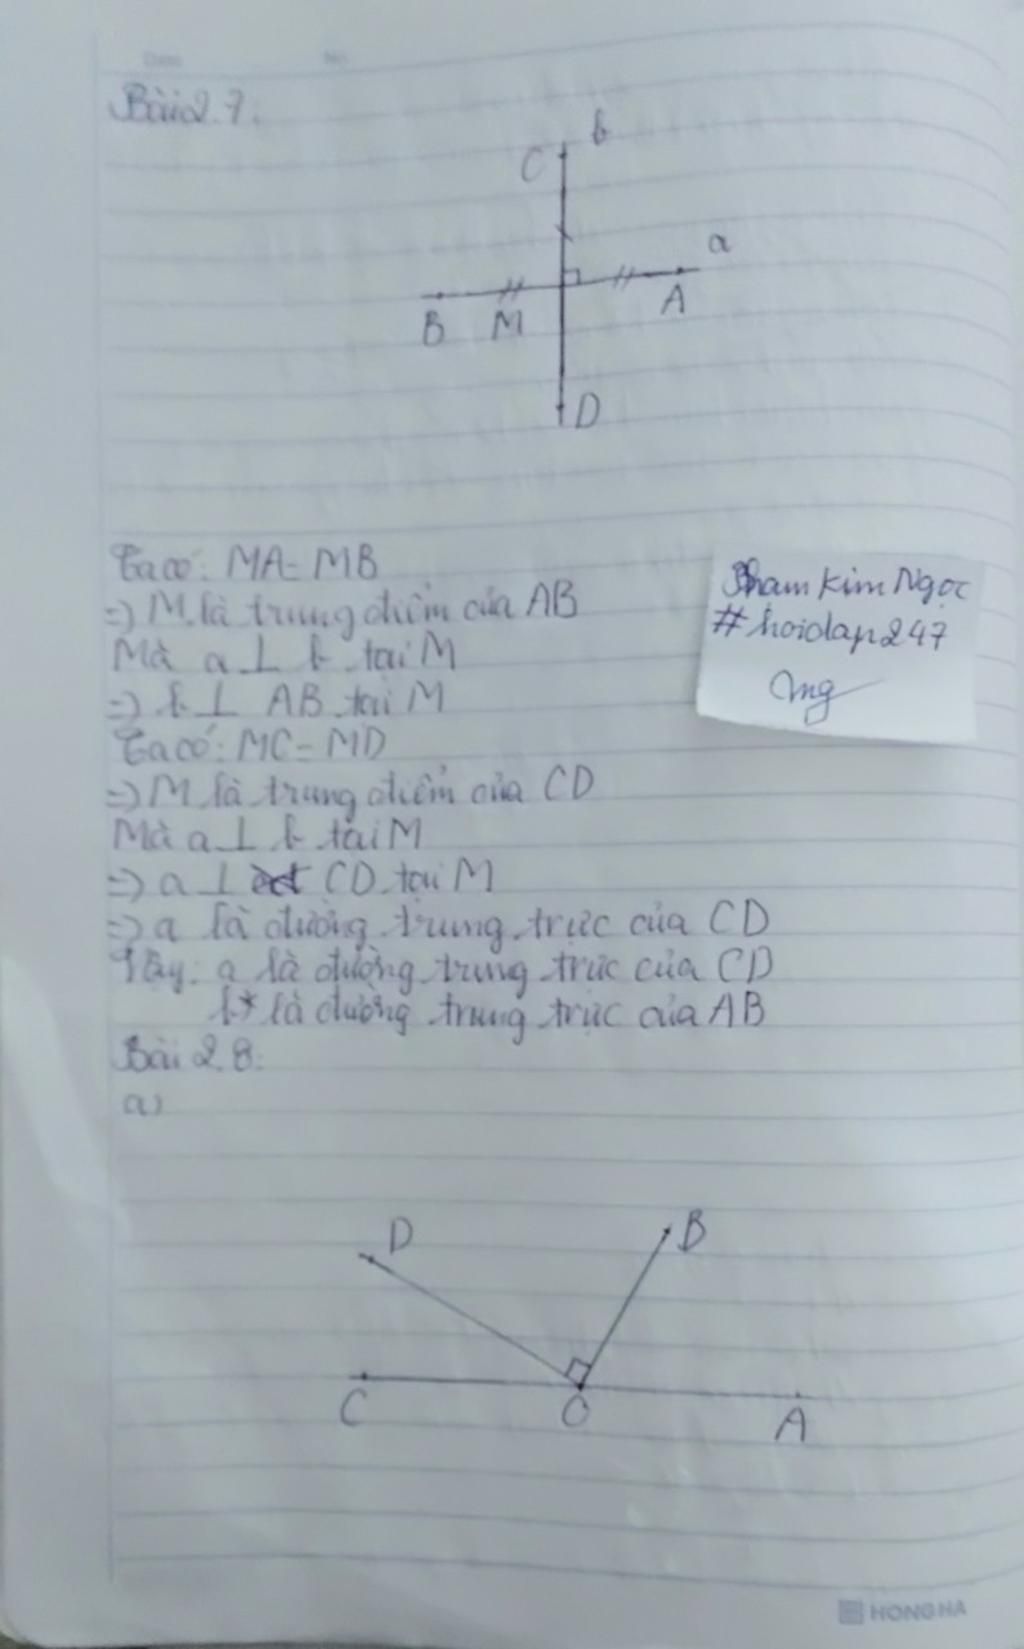 Bài 2.7:
b
C
a
B M A
D
Ta có: MA = MB
=) M là trung điểm của AB
Mà a ⊥ b tại M
=) b ⊥ AB tại M
Ta có: MC = MD
=) M là trung điểm của CD
Mà a ⊥ b tại M
=) a ⊥ CD tại M
=) a là đường trung trực của CD
Vậy: a là đường trung trực của CD
b là đường trung trực của AB
Phạm Kim Ngọc
#hoidap247
Bài 2.8:
a)
D B
C O A
HONG HA